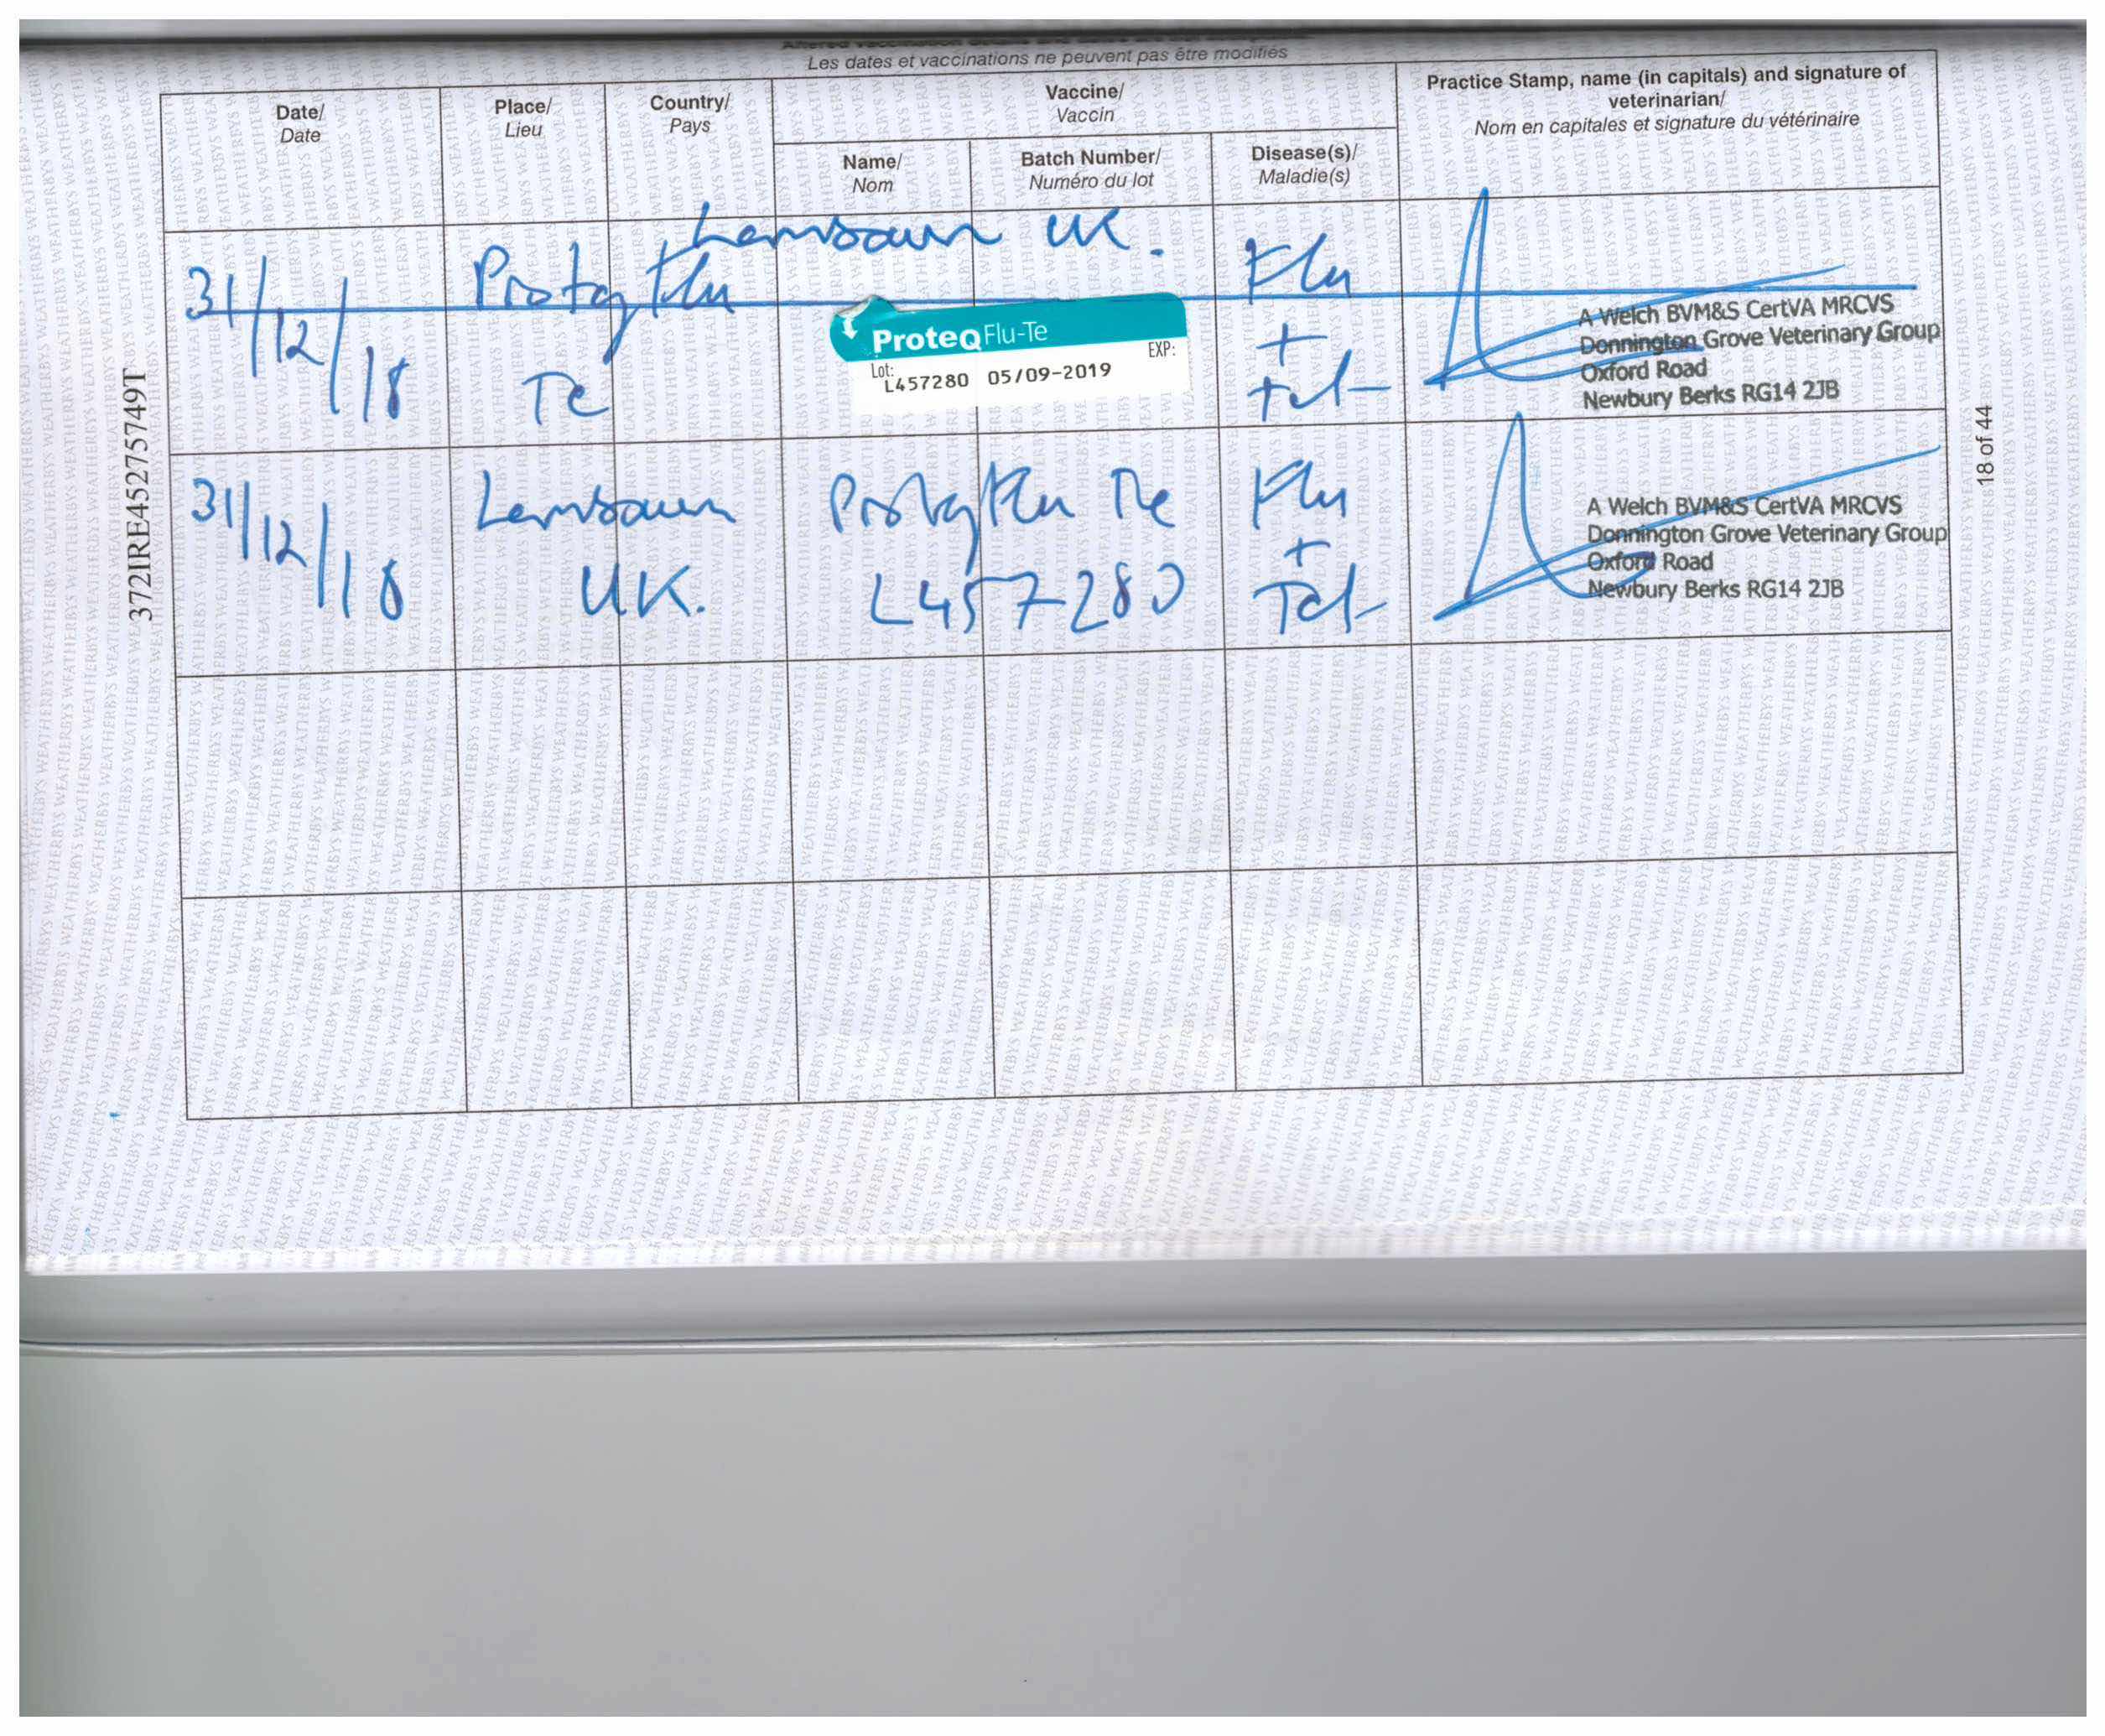 Les dates et vaccinations ne peuvent pas être modifiés
Date/
Date
Place/
Lieu
Country/
Pays
Vaccine/
Vaccin
Name/
Nom
Batch Number/
Numéro du lot
Disease(s)/
Maladie(s)
Practice Stamp, name (in capitals) and signature of
veterinarian/
Nom en capitales et signature du vétérinaire
31/12/18
Lambourn UK.
Proteq Flu
Te
ProteqFlu-Te
Lot: EXP:
L457280 05/09-2019
Flu
+
Tet
A Welch BVM&S CertVA MRCVS
Donnington Grove Veterinary Group
Oxford Road
Newbury Berks RG14 2JB
31/12/18
Lambourn
UK.
Proteq Flu Te
L457280
Flu
+
Tet
A Welch BVM&S CertVA MRCVS
Donnington Grove Veterinary Group
Oxford Road
Newbury Berks RG14 2JB
372IRE45275749T
18 of 44